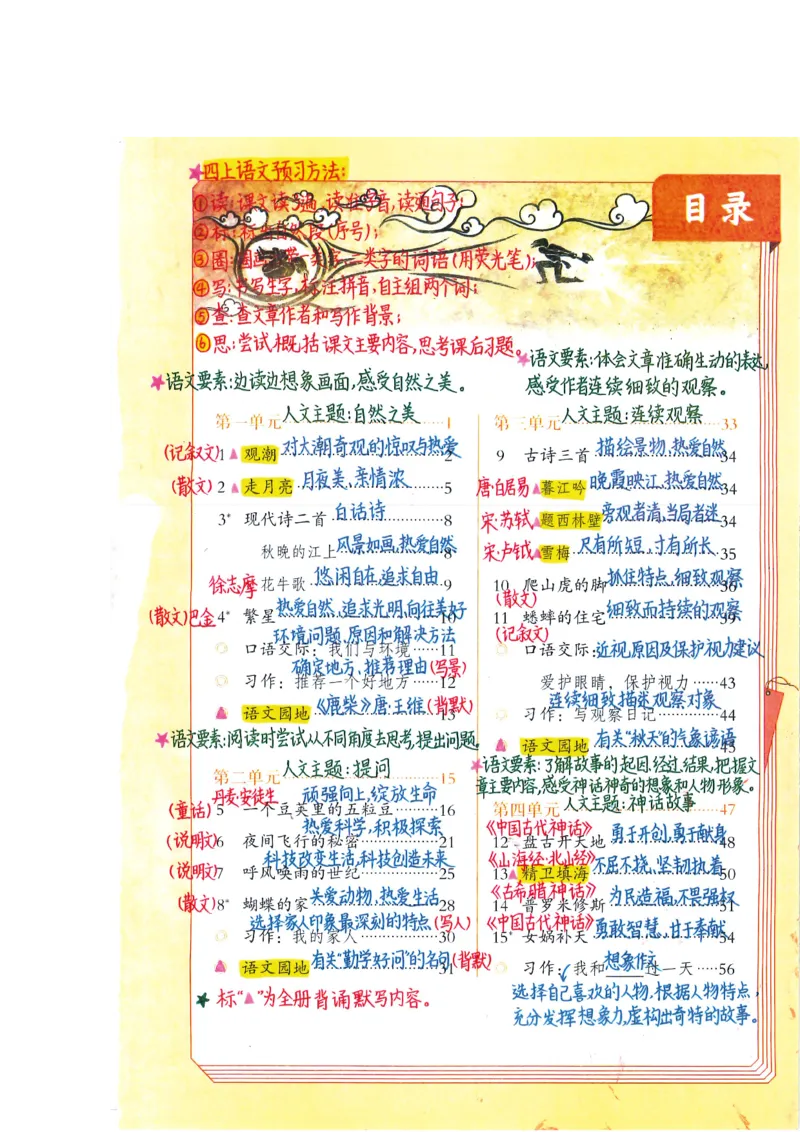 ★四上语文预习方法:
目录
①读:课文读3遍,读准字音,读通句子;
②标:标出自然段(序号);
③圈:圈画一类字、二类字的词语(用荧光笔);
④写:书写生字,标注拼音,自主组两个词;
⑤查:查文章作者和写作背景;
⑥思:尝试概括课文主要内容,思考课后习题。
★语文要素:边读边想象画面,感受自然之美。
第一单元 人文主题:自然之美 1
(记叙文)1▲观潮 对大潮奇观的惊叹与热爱 2
(散文)2▲走月亮 月夜美、亲情浓 5
3* 现代诗二首 白话诗 8
秋晚的江上 风景如画,热爱自然 8
徐志摩 花牛歌 悠闲自在,追求自由 9
(散文)巴金4* 繁星 热爱自然、追求光明,向往美好 10
环境问题、原因和解决方法
口语交际:我们与环境 11
确定地方、推荐理由(写景)
习作:推荐一个好地方 12
▲语文园地《鹿柴》唐·王维(背默) 13
★语文要素:阅读时尝试从不同角度去思考,提出问题。
第二单元 人文主题:提问 15
丹麦·安徒生 顽强向上,绽放生命
(童话)5 一个豆荚里的五粒豆 16
热爱科学,积极探索
(说明文)6 夜间飞行的秘密 21
科技改变生活,科技创造未来
(说明文)7 呼风唤雨的世纪 25
(散文)8* 蝴蝶的家 关爱动物,热爱生活 28
选择家人印象最深刻的特点(写人)
习作:我的家人 30
▲语文园地 有关“勤学好问”的名句(背默) 31
★标“▲”为全册背诵默写内容。
★语文要素:体会文章准确生动的表达,
感受作者连续细致的观察。
第三单元 人文主题:连续观察 33
9 古诗三首 描绘景物,热爱自然 34
唐·白居易▲暮江吟 晚霞映江,热爱自然 34
宋·苏轼▲题西林壁 旁观者清,当局者迷 34
宋·卢钺▲雪梅 尺有所短,寸有所长 35
10 爬山虎的脚 抓住特点,细致观察 36
(散文)
11 蟋蟀的住宅 细致而持续的观察 39
(记叙文)
口语交际:近视原因及保护视力建议
爱护眼睛,保护视力 43
连续细致描述观察对象
习作:写观察日记 44
▲语文园地 有关“秋天”的气象谚语 45
★语文要素:了解故事的起因、经过、结果,把握文
章主要内容,感受神话神奇的想象和人物形象。
第四单元 人文主题:神话故事 47
《中国古代神话》
12 盘古开天地 勇于开创,勇于献身 48
《山海经·北山经》
13▲精卫填海 不屈不挠、坚韧执着 50
《古希腊神话》
14* 普罗米修斯 为民造福,不畏强权 51
《中国古代神话》
15* 女娲补天 勇敢智慧,甘于奉献 54
习作:我和 想象作文 过一天 56
选择自己喜欢的人物、根据人物特点,
充分发挥想象力,虚构出奇特的故事。